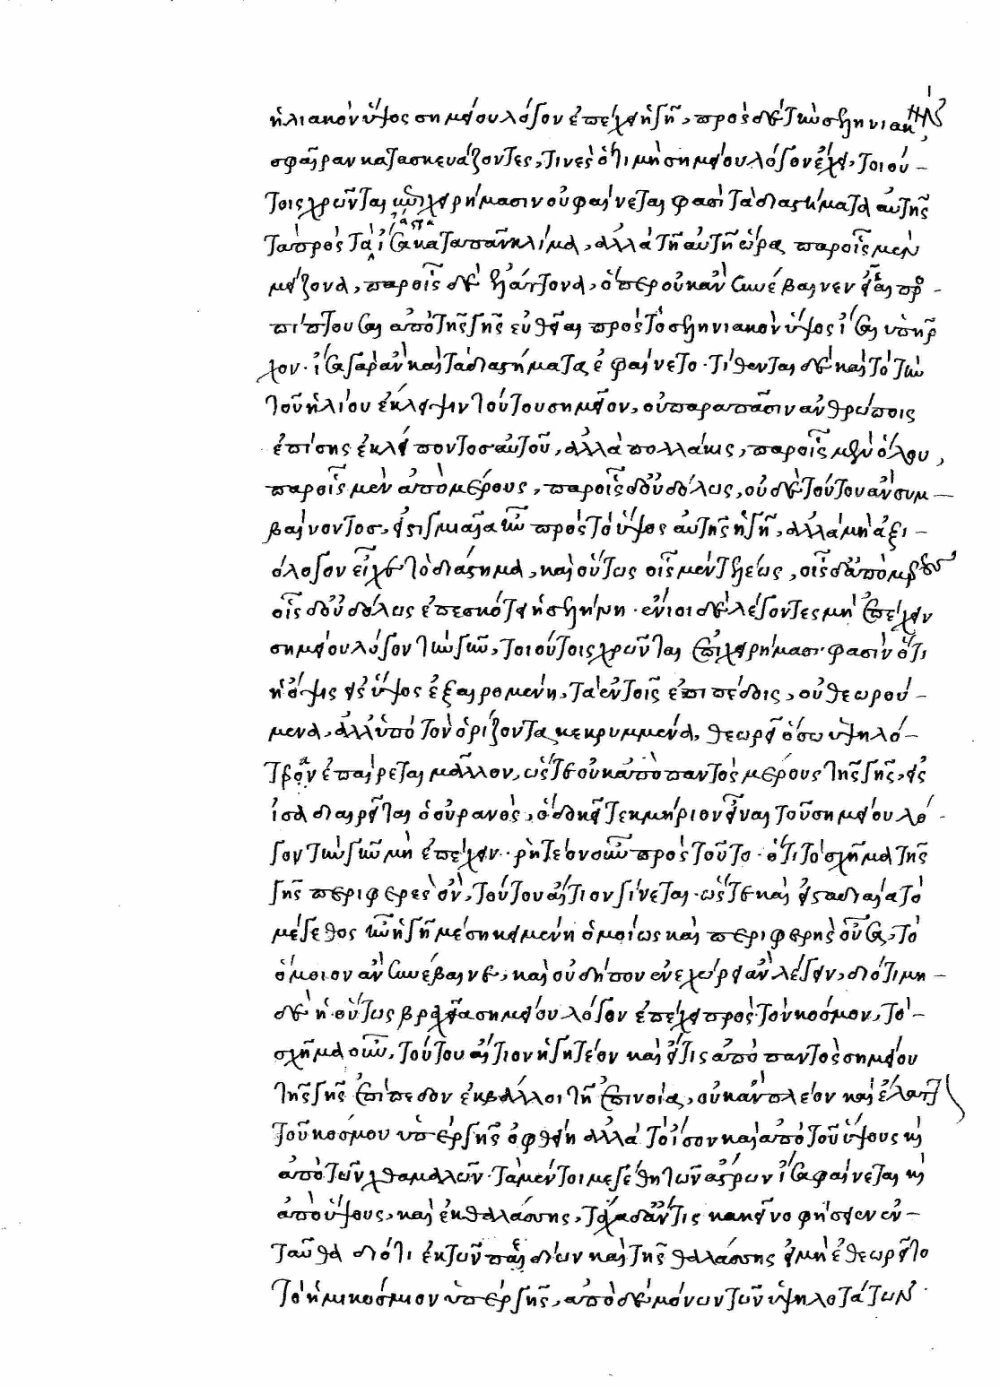 ἡλιακὸν ὕψος σημείου λόγον ἐπεῖχεν ἡ γῆ, πρὸς δὲ τὴν σεληνιακὴν
σφαῖραν κατασκευάζοντες, τινὲς ὅτι μὴ σημείου λόγον ἔχει, τοιού-
τοις χρῶνται ἐπιχειρήμασιν οὐ φαίνεται φασὶ τὰ διαστήματα αὐτῆς
τὰ πρὸς τὰ ἄστρα ἴσα κατὰ πᾶν κλίμα, ἀλλὰ τῇ αὐτῇ ὥρᾳ παρ' οἷς μὲν
μείζονα, παρ' οἷς δὲ ἐλάττονα, ὅπερ οὐκ ἂν συνέβαινεν εἰ αἱ προ-
πίπτουσαι ἀπὸ τῆς γῆς εὐθεῖαι πρὸς τὸ σεληνιακὸν ὕψος ἴσαι ὑπῆρ
χον· ἴσα γὰρ ἂν καὶ τὰ διαστήματα ἐφαίνετο· τίθενται δὲ καὶ τὸ τὴν
τοῦ ἡλίου ἔκλειψιν τούτου σημεῖον, οὐ παρὰ πᾶσιν ἀνθρώποις
ἐπίσης ἐκλείποντος αὐτοῦ, ἀλλὰ πολλάκις, παρ' οἷς μὲν ὅλου,
παρ' οἷς μὲν ἀπὸ μέρους, παρ' οἷς δ' οὐδόλως, οὐδὲ τούτου ἂν συμ-
βαίνοντος, εἰ στιγμιαία ἦν πρὸς τὸ ὕψος αὐτῆς ἡ γῆ, ἀλλὰ μὴ ἀξι-
όλογον εἶχε τὸ διάστημα, καὶ οὕτως οἷς μὲν τελέως, οἷς δ' ἀπὸ μέρους
οἷς δ' οὐδόλως ἐπεσκότει ἡ σελήνη· ἔνιοι δὲ λέγοντες μὴ ἐπέχειν
σημείου λόγον τὴν γῆν, τοιούτοις χρῶνται ἐπιχειρήμασι· φασὶν ὅτι
ἡ ὄψις εἰς ὕψος ἐξαιρομένη, τὰ ἐν τοῖς ἐπιπέδοις, οὐ θεωρού-
μενα, ἀλλ' ὑπὸ τὸν ὁρίζοντα κεκρυμμένα, θεωρεῖ ὅσῳ ὑψηλό-
τερον ἐπαίρεται μᾶλλον, ὥστε οὐκ ἀπὸ παντὸς μέρους τῆς γῆς, εἰς
ἴσα διαιρεῖται ὁ οὐρανός, ὃ δὴ τεκμήριον εἶναι τοῦ σημείου λό-
γον τὴν γῆν μὴ ἐπέχειν· ῥητέον οὖν πρὸς τοῦτο· ὅτι τὸ σχῆμα τῆς
γῆς περιφερὲς ὄν, τούτου αἴτιον γίνεται· ὥστε καὶ εἰ σταδιαία τὸ
μέγεθος ἦν ἡ γῆ μέση κειμένη ὁμοίως καὶ περιφερὴς οὖσα, τὸ
ὅμοιον ἂν συνέβαινε, καὶ οὐ δήπου ἐνεχώρει ἂν λέγειν, διότι μη-
δὲ ἡ οὕτως βραχεῖα σημείου λόγον ἐπεῖχε πρὸς τὸν κόσμον, τὸ
σχῆμα οὖν, τούτου αἴτιον ἡγητέον καὶ εἴ τις ἀπὸ παντὸς σημείου
τῆς γῆς ἐπίπεδον ἐκβάλλοι τῇ ἐπινοίᾳ, οὐκ ἂν πλέον καὶ ἔλαττον
τοῦ κόσμου ὑπὲρ γῆς ὀφθείη ἀλλὰ τὸ ἴσον καὶ ἀπὸ τοῦ ὕψους καὶ
ἀπὸ τῶν χθαμαλῶν· τὰ μέντοι μεγέθη τῶν ἄστρων ἴσα φαίνεται καὶ
ἀπὸ ὕψους, καὶ ἐκ θαλάσσης, τάχα δ' ἄν τις κἀκεῖνο φήσειεν ἐν-
ταῦθα διότι ἐκ τῶν πεδίων καὶ τῆς θαλάσσης εἰ μὴ ἐθεωρεῖτο
τὸ ἡμικόσμιον ὑπὲρ γῆς, ἀπὸ δὲ μόνων τῶν ὑψηλοτάτων